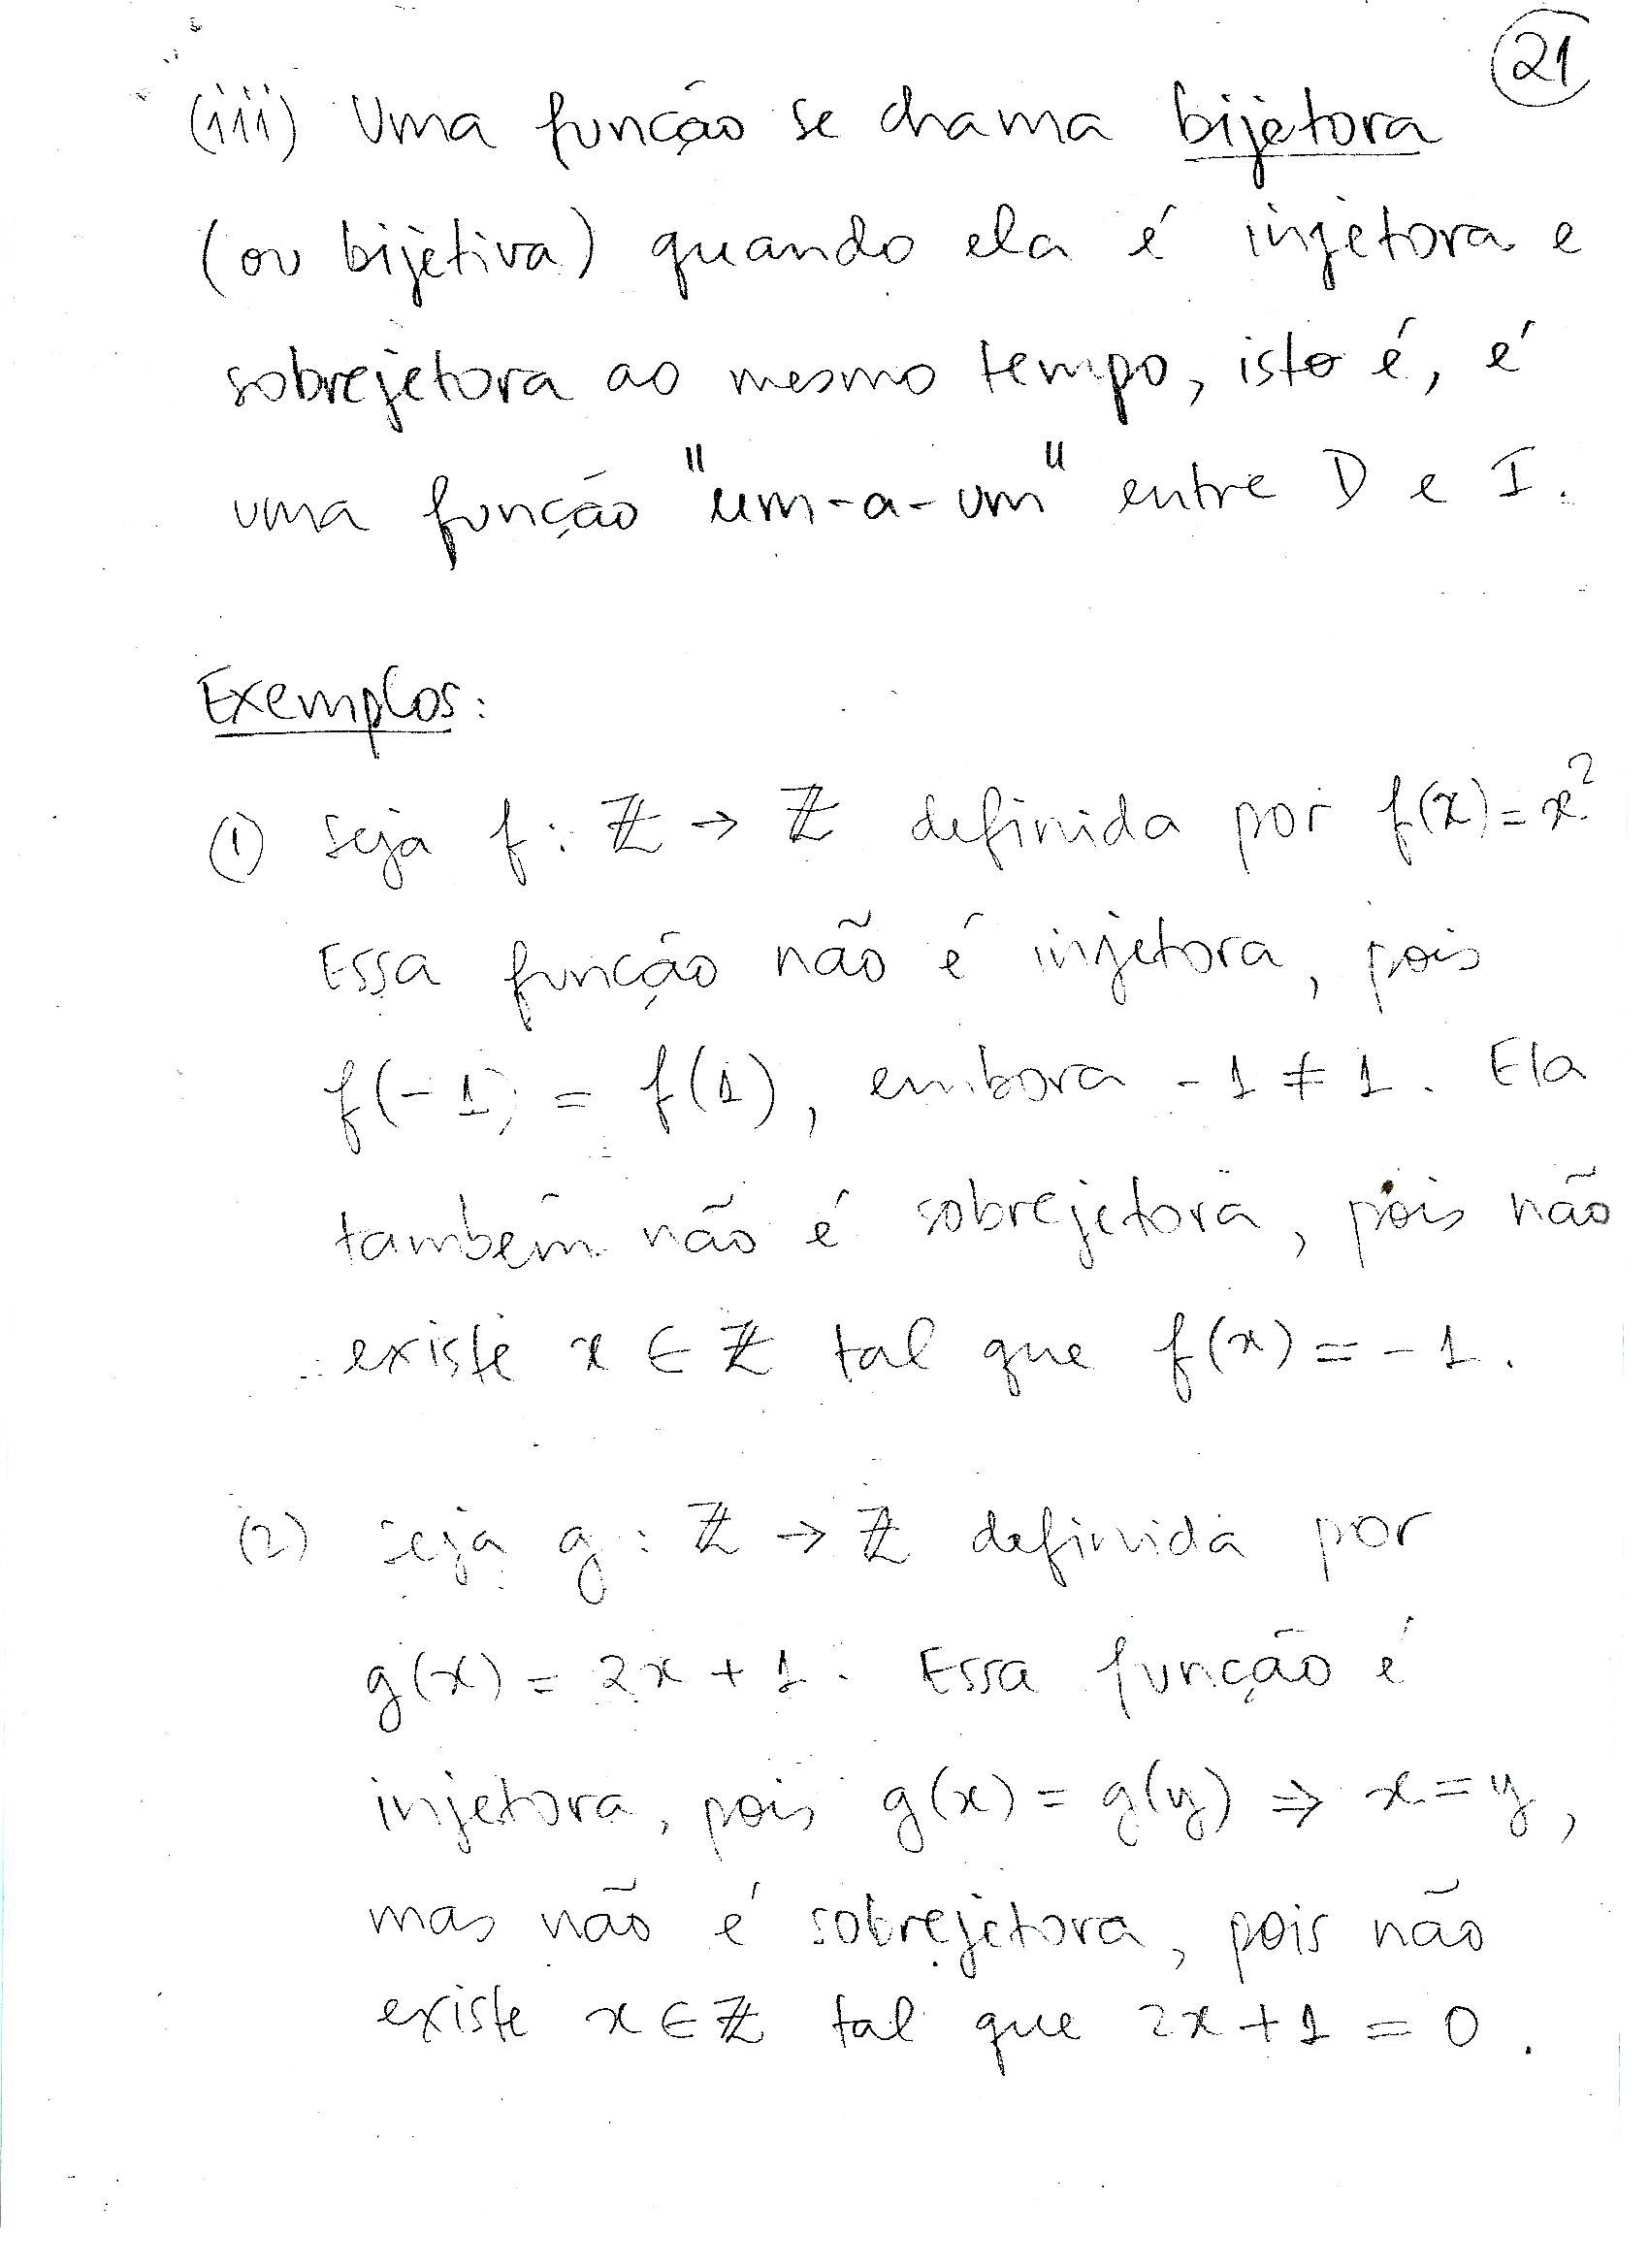 21
(iii) Uma função se chama bijetora
(ou bijetiva) quando ela é injetora e
sobrejetora ao mesmo tempo, isto é, é
uma função "um-a-um" entre D e I.
Exemplos:
(1) Seja f: ℤ → ℤ definida por f(x)=x²
Essa função não é injetora, pois
f(-1) = f(1), embora -1 ≠ 1. Ela
também não é sobrejetora, pois não
existe x ∈ ℤ tal que f(x) = -1.
(2) Seja g: ℤ → ℤ definida por
g(x) = 2x + 1. Essa função é
injetora, pois g(x) = g(y) ⇒ x = y,
mas não é sobrejetora, pois não
existe x ∈ ℤ tal que 2x + 1 = 0.